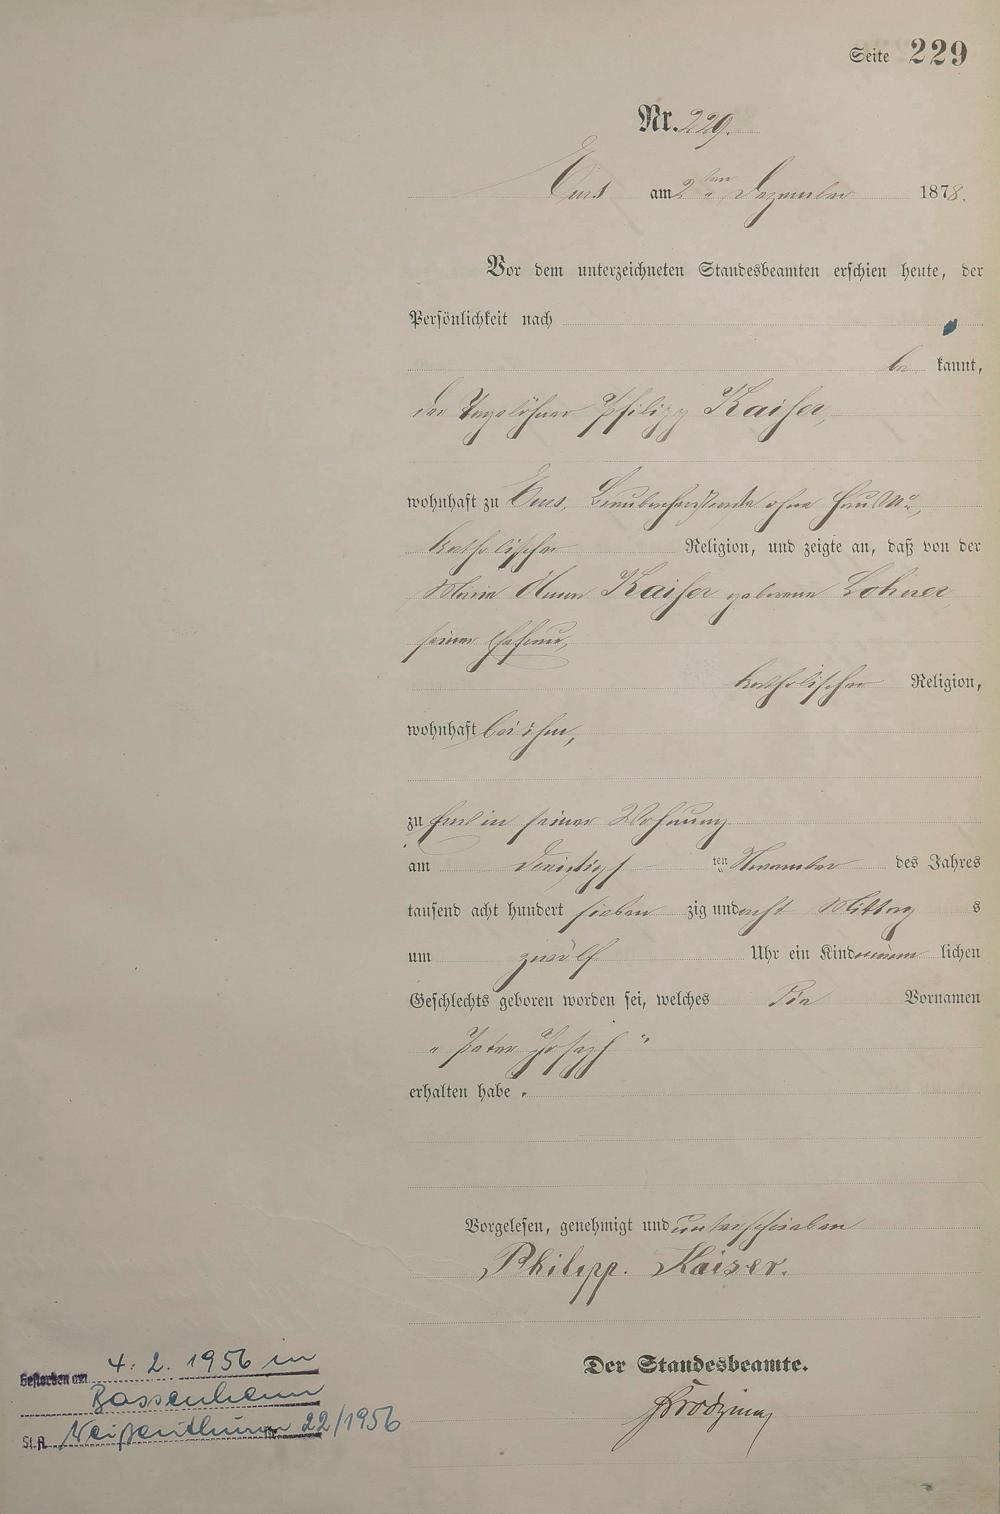 Seite 229
Nr. 229.
Ems am 2ten Dezember 1878.
Vor dem unterzeichneten Standesbeamten erschien heute, der
Persönlichkeit nach
be kannt,
der Tagelöhner Philipp Kaiser,
wohnhaft zu Ems, ohne Haus No,
katholischer Religion, und zeigte an, daß von der
Maria Anna Kaiser geborene Lohner,
seiner Ehefrau,
katholischer Religion,
wohnhaft bei ihm,
zu Ems in seiner Wohnung
am dreißigs ten November des Jahres
tausend acht hundert sieben zig und acht Mittag s
um zwölf Uhr ein Kind männ lichen
Geschlechts geboren worden sei, welches die Vornamen
"Peter Joseph"
erhalten habe.
Vorgelesen, genehmigt und unterschrieben
Philipp. Kaiser.
Der Standesbeamte.
Gestorben am 4. 2. 1956 in
Bassenheim
St.A. Weißenthurm Nr. 22/1956